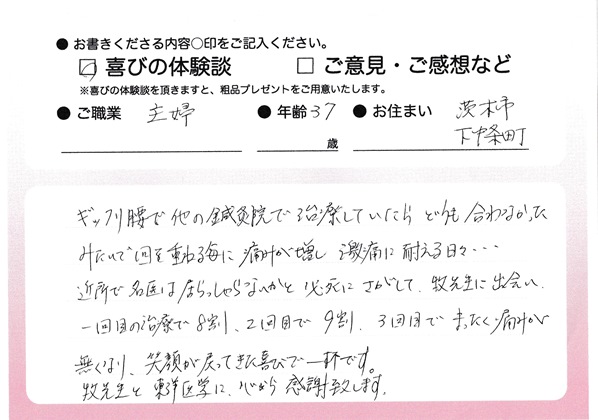 ● お書きくださる内容○印をご記入ください。
☑ 喜びの体験談 □ ご意見・ご感想など
※喜びの体験談を頂きますと、粗品プレゼントをご用意いたします。
● ご職業 主婦 ● 年齢 37 歳 ● お住まい 茨木市
下中条町
ギックリ腰で他の鍼灸院で治療していたら どうも合わなかった
みたいで回を重ねる毎に痛みが増し 激痛に耐える日々・・・
近所で名医は居らっしゃらないかと必死にさがして、牧先生に出会い、
一回目の治療で8割、2回目で9割、3回目でまったく痛みが
無くなり、笑顔が戻ってきた喜びで一杯です。
牧先生と東洋医学に、心から感謝致します。